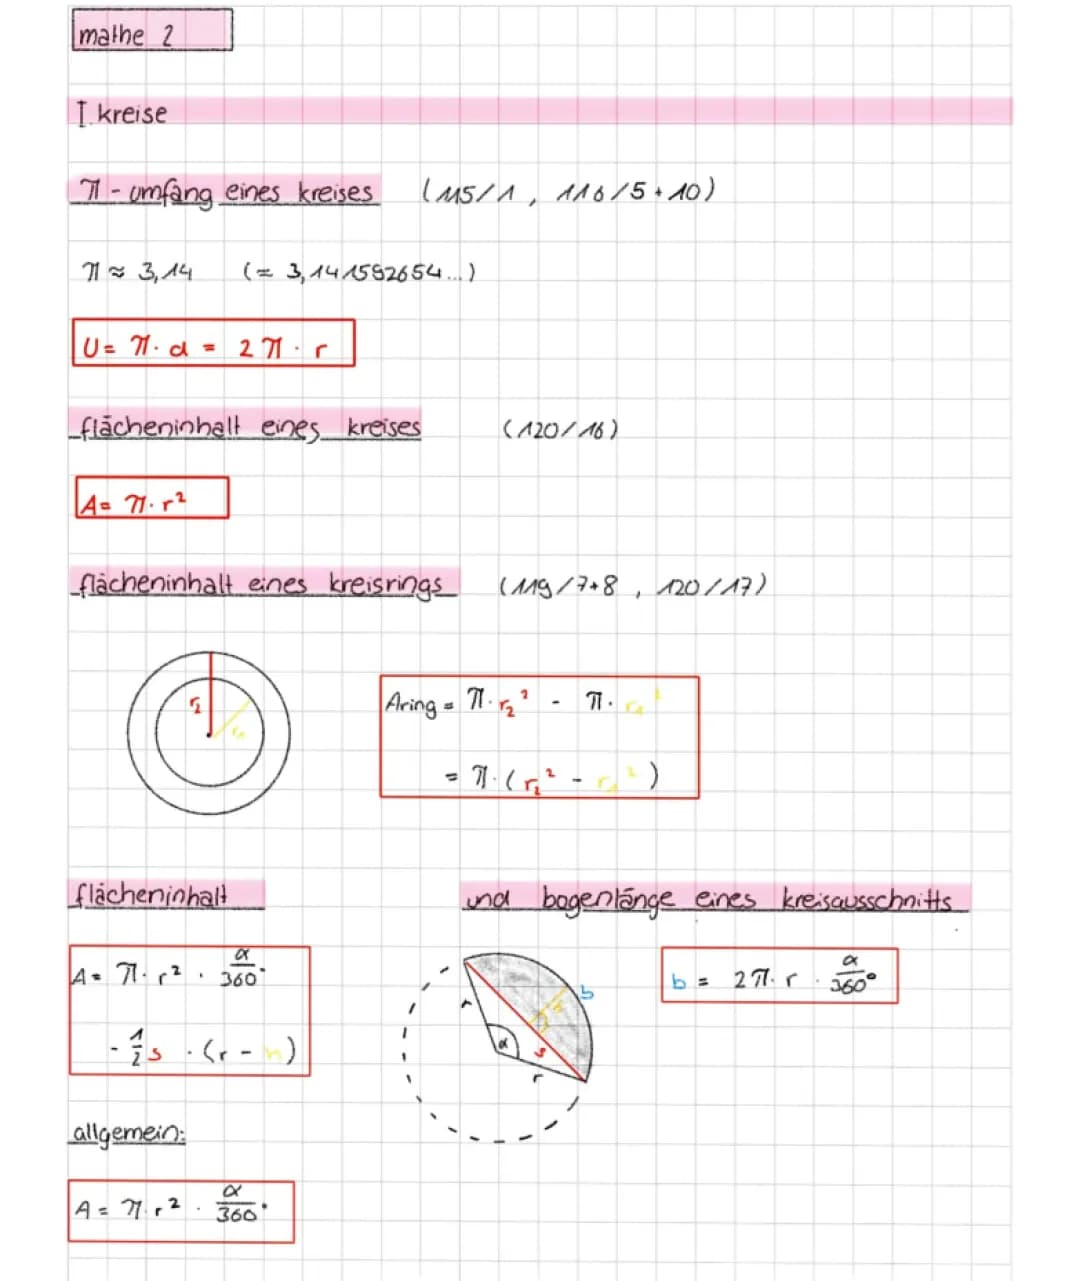 mathe 2
I. kreise
π - umfang eines kreises (115/1, 116/5+10)
π ≈ 3,14 (= 3,141592654...)
U = π · d = 2π · r
flächeninhalt eines kreises (120/16)
A = π · r²
flächeninhalt eines kreisrings (119/7+8, 120/17)
r₂
r₁
Aring = π · r₂² - π · r₁²
= π · (r₂² - r₁²)
flächeninhalt und bogenlänge eines kreisausschnitts
A = π · r² · α/360°
- 1/2 s · (r - h)
r
α
r
s
h
b
b = 2π · r · α/360°
allgemein:
A = π · r² · α/360°